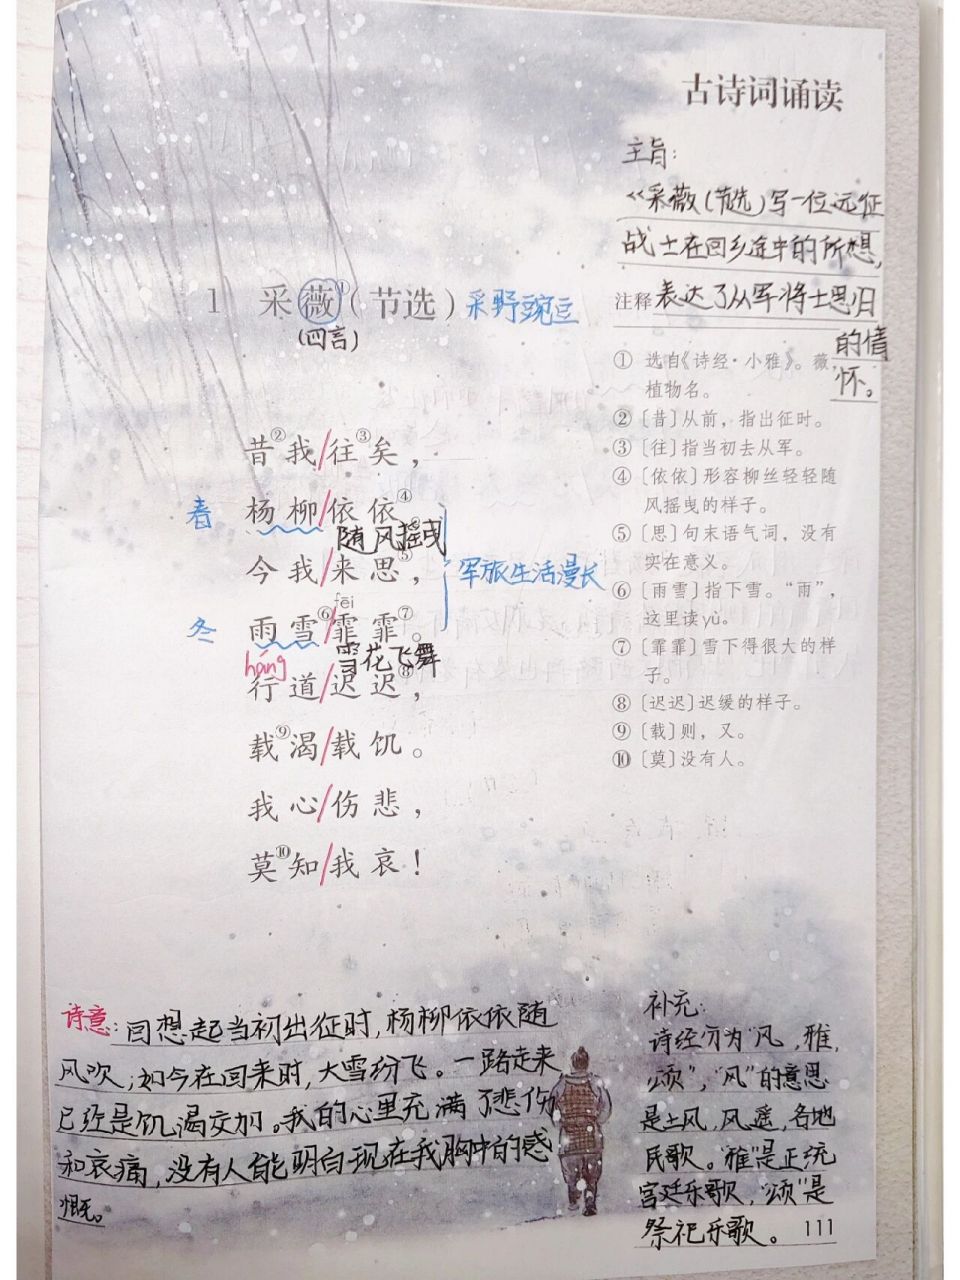 古诗词诵读
主旨:
《采薇(节选)写一位远征
战士在回乡途中的所想,
表达了从军将士思旧
的情
怀。
1 采薇①(节选)
采野豌豆
(四言)
昔②我/往③矣,
春
杨柳/依依④
随风摇曳
今我/来思⑤,
军旅生活漫长
fēi
冬
雨雪⑥/霏霏⑦。
雪花飞舞
háng
行道/迟迟⑧,
载⑨渴/载饥。
我心/伤悲,
莫⑩知/我哀!
注释
① 选自《诗经·小雅》。薇,
植物名。
② 〔昔〕从前,指出征时。
③ 〔往〕指当初去从军。
④ 〔依依〕形容柳丝轻轻随
风摇曳的样子。
⑤ 〔思〕句末语气词,没有
实在意义。
⑥ 〔雨雪〕指下雪。“雨”,
这里读yù。
⑦ 〔霏霏〕雪下得很大的样
子。
⑧ 〔迟迟〕迟缓的样子。
⑨ 〔载〕则,又。
⑩ 〔莫〕没有人。
诗意:回想起当初出征时,杨柳依依随
风吹;如今在回来时,大雪纷飞。一路走来
已经是饥渴交加。我的心里充满了悲伤
和哀痛,没有人能明白现在我胸中的感
慨。
补充:
诗经分为“风,雅,
颂”,“风”的意思
是土风,风谣,各地
民歌。“雅”是正统
宫廷乐歌,“颂”是
祭祀乐歌。
111